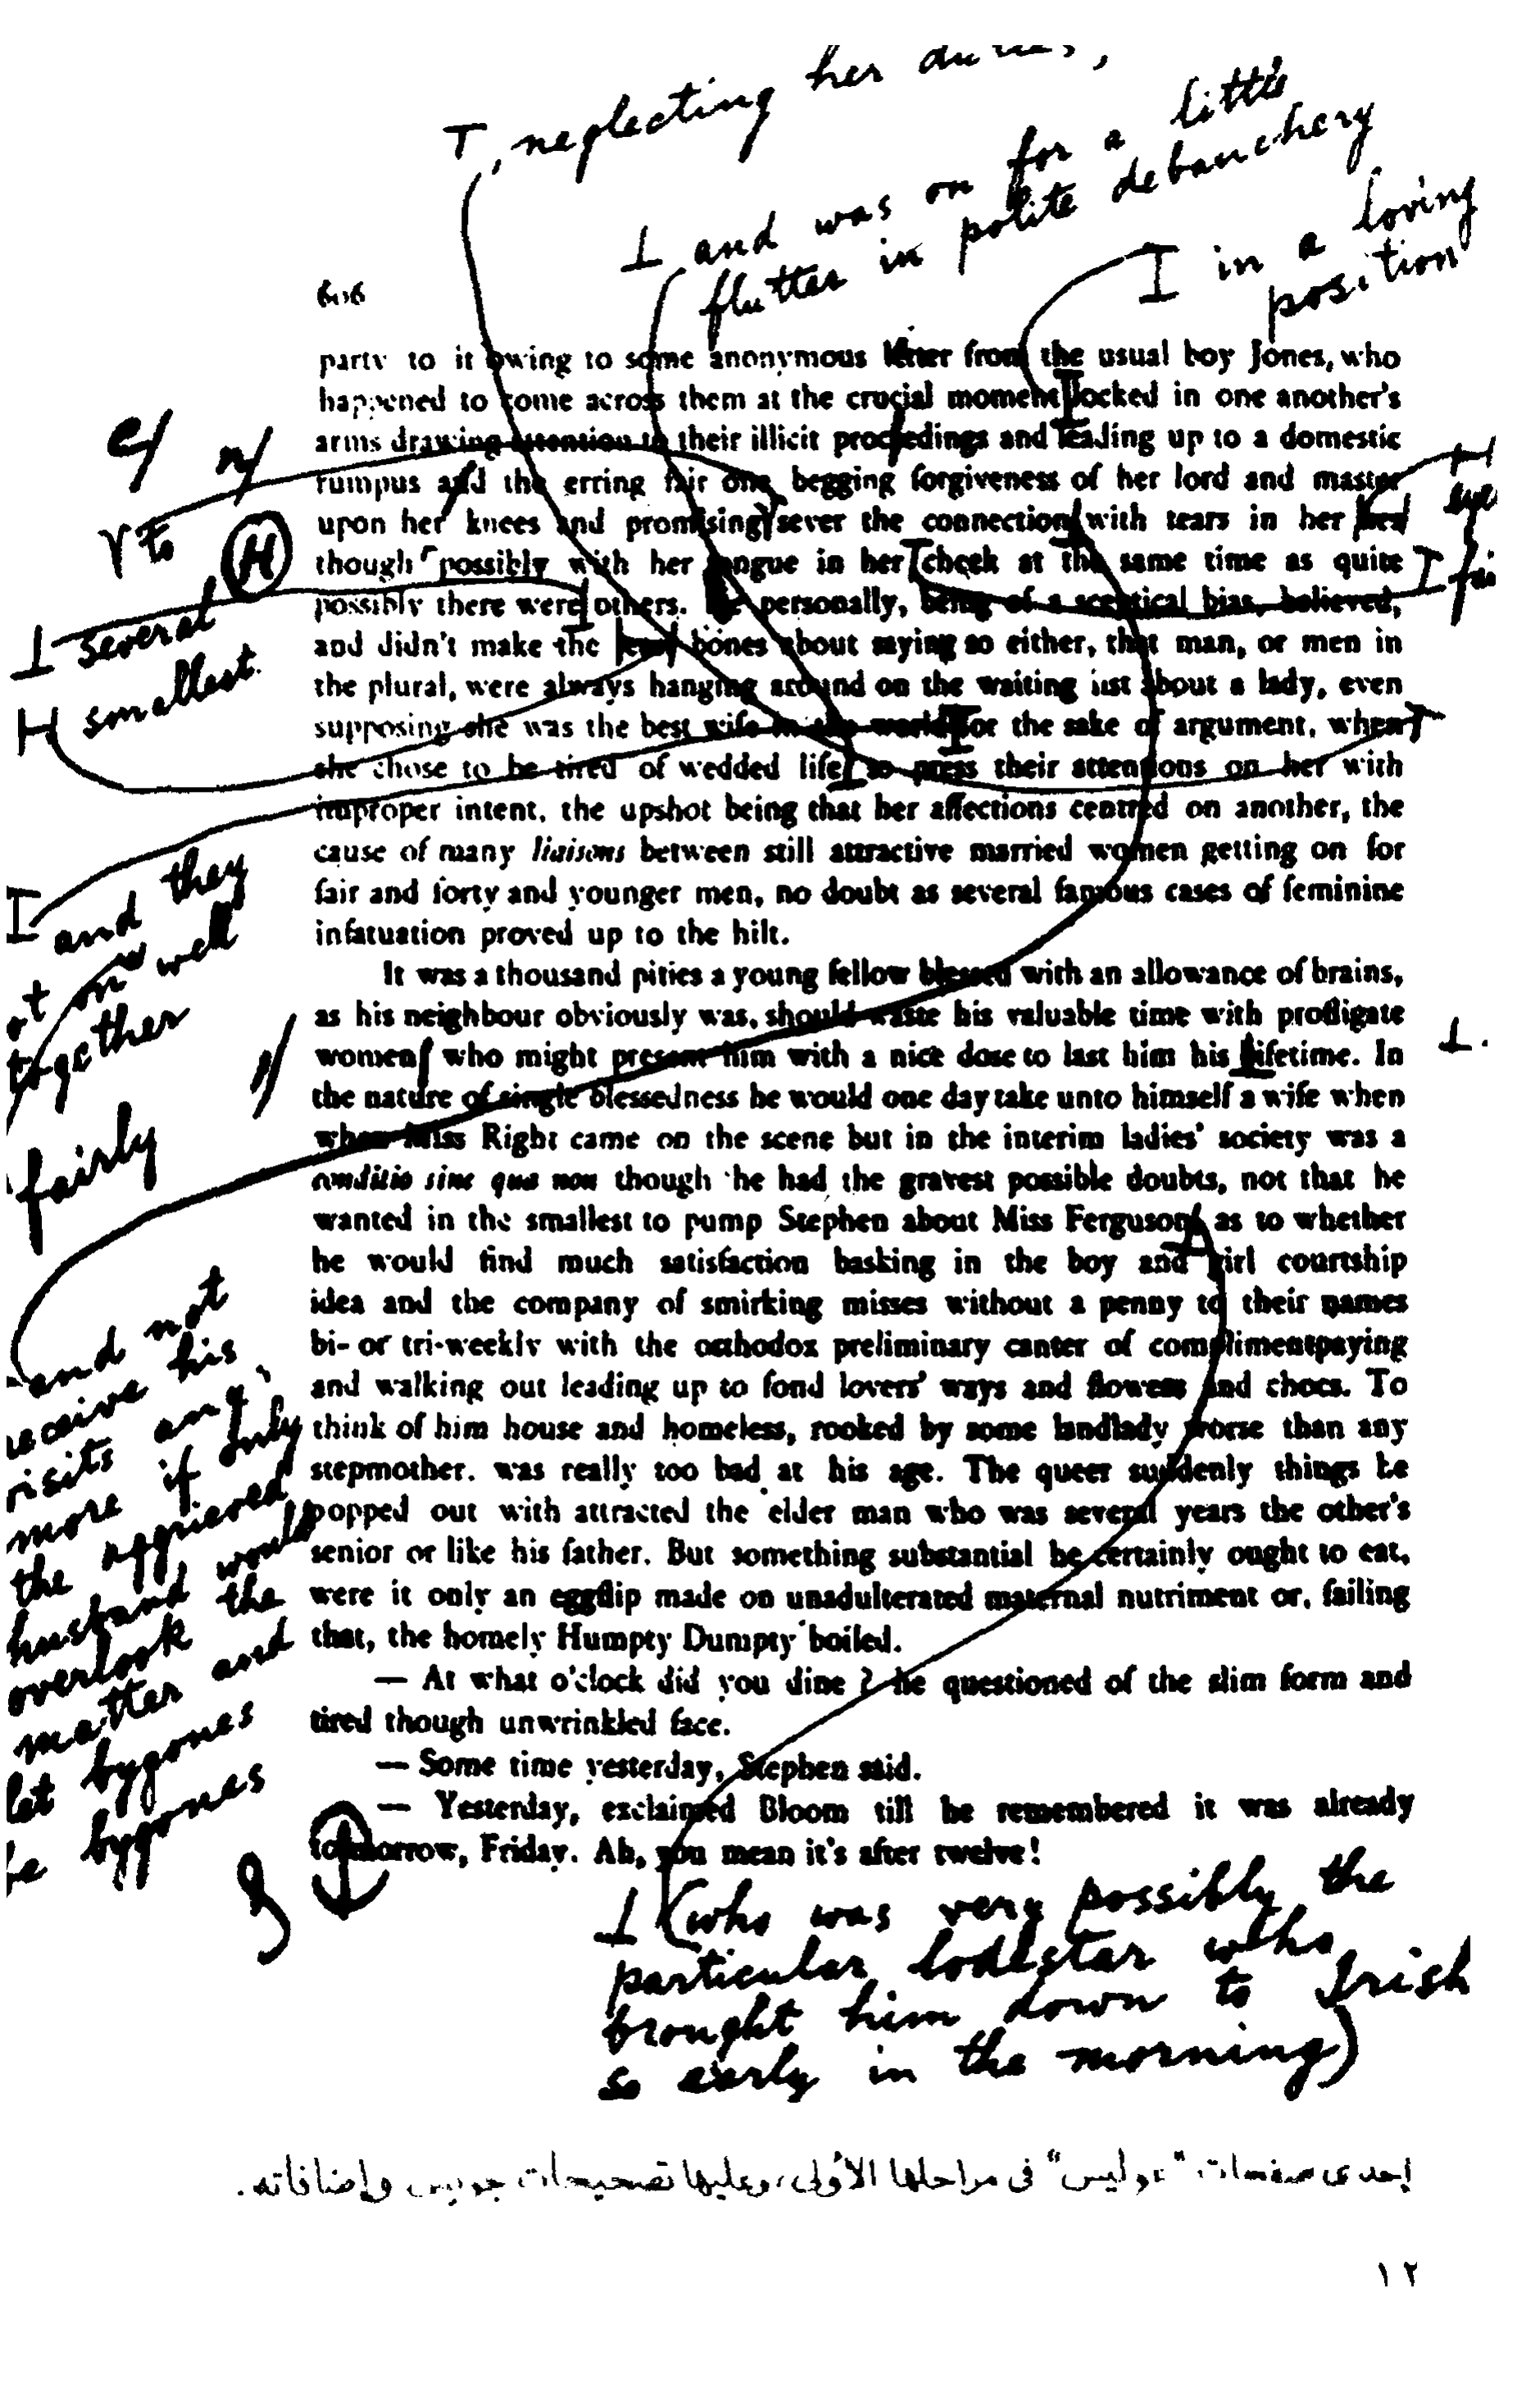 T, neglecting her duties,
I and was on for a little
flutter in polite debauchery
I in a loving
position
606
party to it owing to some anonymous letter from the usual boy Jones, who
happened to come across them at the crucial moment locked in one another's
arms drawing attention to their illicit proceedings and leading up to a domestic
rumpus and the erring fair one begging forgiveness of her lord and master
upon her knees and promising sever the connection with tears in her
though possibly with her tongue in her cheek at the same time as quite
possibly there were others. He personally, being of a sceptical bias, believed,
and didn't make the least bones about saying so either, that man, or men in
the plural, were always hanging around on the waiting list about a lady, even
supposing she was the best wife in the world for the sake of argument, when
she chose to be tired of wedded life to press their attentions on her with
improper intent, the upshot being that her affections centred on another, the
cause of many liaisons between still attractive married women getting on for
fair and forty and younger men, no doubt as several famous cases of feminine
infatuation proved up to the hilt.
It was a thousand pities a young fellow blessed with an allowance of brains,
as his neighbour obviously was, should waste his valuable time with profligate
women who might present him with a nice dose to last him his lifetime. In
the nature of single blessedness he would one day take unto himself a wife when
when Miss Right came on the scene but in the interim ladies' society was a
conditio sine qua non though he had the gravest possible doubts, not that he
wanted in the smallest to pump Stephen about Miss Ferguson as to whether
he would find much satisfaction basking in the boy and girl courtship
idea and the company of smirking misses without a penny to their names
bi- or tri-weekly with the orthodox preliminary canter of complimentpaying
and walking out leading up to fond lovers' ways and flowers and chocs. To
think of him house and homeless, rooked by some landlady worse than any
stepmother, was really too bad at his age. The queer suddenly things he
popped out with attracted the elder man who was several years the other's
senior or like his father. But something substantial he certainly ought to eat,
were it only an eggflip made on unadulterated maternal nutriment or, failing
that, the homely Humpty Dumpty boiled.
— At what o'clock did you dine? he questioned of the slim form and
tired though unwrinkled face.
— Some time yesterday, Stephen said.
— Yesterday, exclaimed Bloom till he remembered it was already
tomorrow, Friday. Ah, you mean it's after twelve!
e/ n/
to
H
I several
H smallest
I and they
on well
together
fairly
and not
receive his
visits any
more if only
the aggrieved
husband would
overlook the
matter and
let bygones
be bygones
I (who was very possibly the
particular lodestar who
brought him down to Irish
so early in the morning)
إحدى صفحات "عوليس" فى مراحلها الأولى، وعليها تصحيحات جويس وإضافاته.
١٢